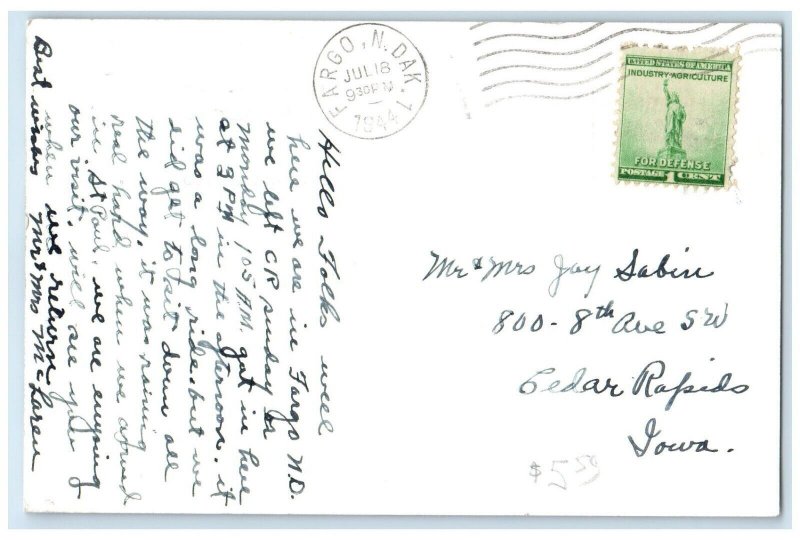 FARGO, N. DAK. 1
JUL 18
930 PM
1944
UNITED STATES OF AMERICA
INDUSTRY AGRICULTURE
FOR DEFENSE
POSTAGE 1 CENT
Hello Folks well
here we are in Fargo N.D.
we left CR sunday or
monday 105 A.M. got in here
at 3 PM in the afternoon. it
was a long ride. but we
did get to sit down all
the way. it was raining
real hard when we arrived
in St Paul, we are enjoying
our visit. will see you
when we return
Best wishes Mr & Mrs McLaren
Mr & Mrs Jay Sabin
800 - 8th Ave SW
Cedar Rapids
Iowa.
$5.50